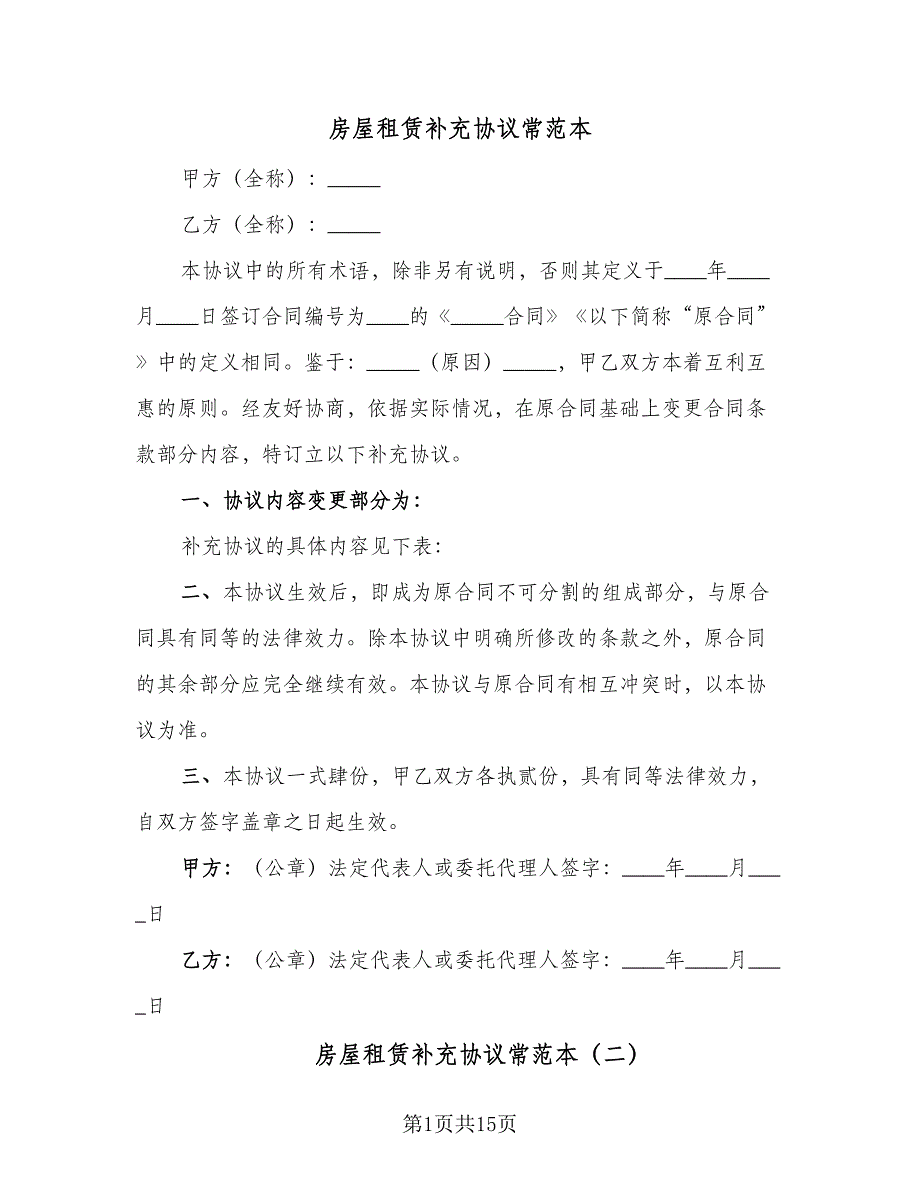 房屋租赁补充协议常范本
甲方（全称）：_____
乙方（全称）：_____
本协议中的所有术语，除非另有说明，否则其定义于____年____
月____日签订合同编号为____的《_____合同》《以下简称“原合同”
》中的定义相同。鉴于：_____（原因）_____，甲乙双方本着互利互
惠的原则。经友好协商，依据实际情况，在原合同基础上变更合同条
款部分内容，特订立以下补充协议。
一、协议内容变更部分为：
补充协议的具体内容见下表：
二、本协议生效后，即成为原合同不可分割的组成部分，与原合
同具有同等的法律效力。除本协议中明确所修改的条款之外，原合同
的其余部分应完全继续有效。本协议与原合同有相互冲突时，以本协
议为准。
三、本协议一式肆份，甲乙双方各执贰份，具有同等法律效力，
自双方签字盖章之日起生效。
甲方：（公章）法定代表人或委托代理人签字：____年____月___
_日
乙方：（公章）法定代表人或委托代理人签字：____年____月___
_日
房屋租赁补充协议常范本（二）
第1页共15页